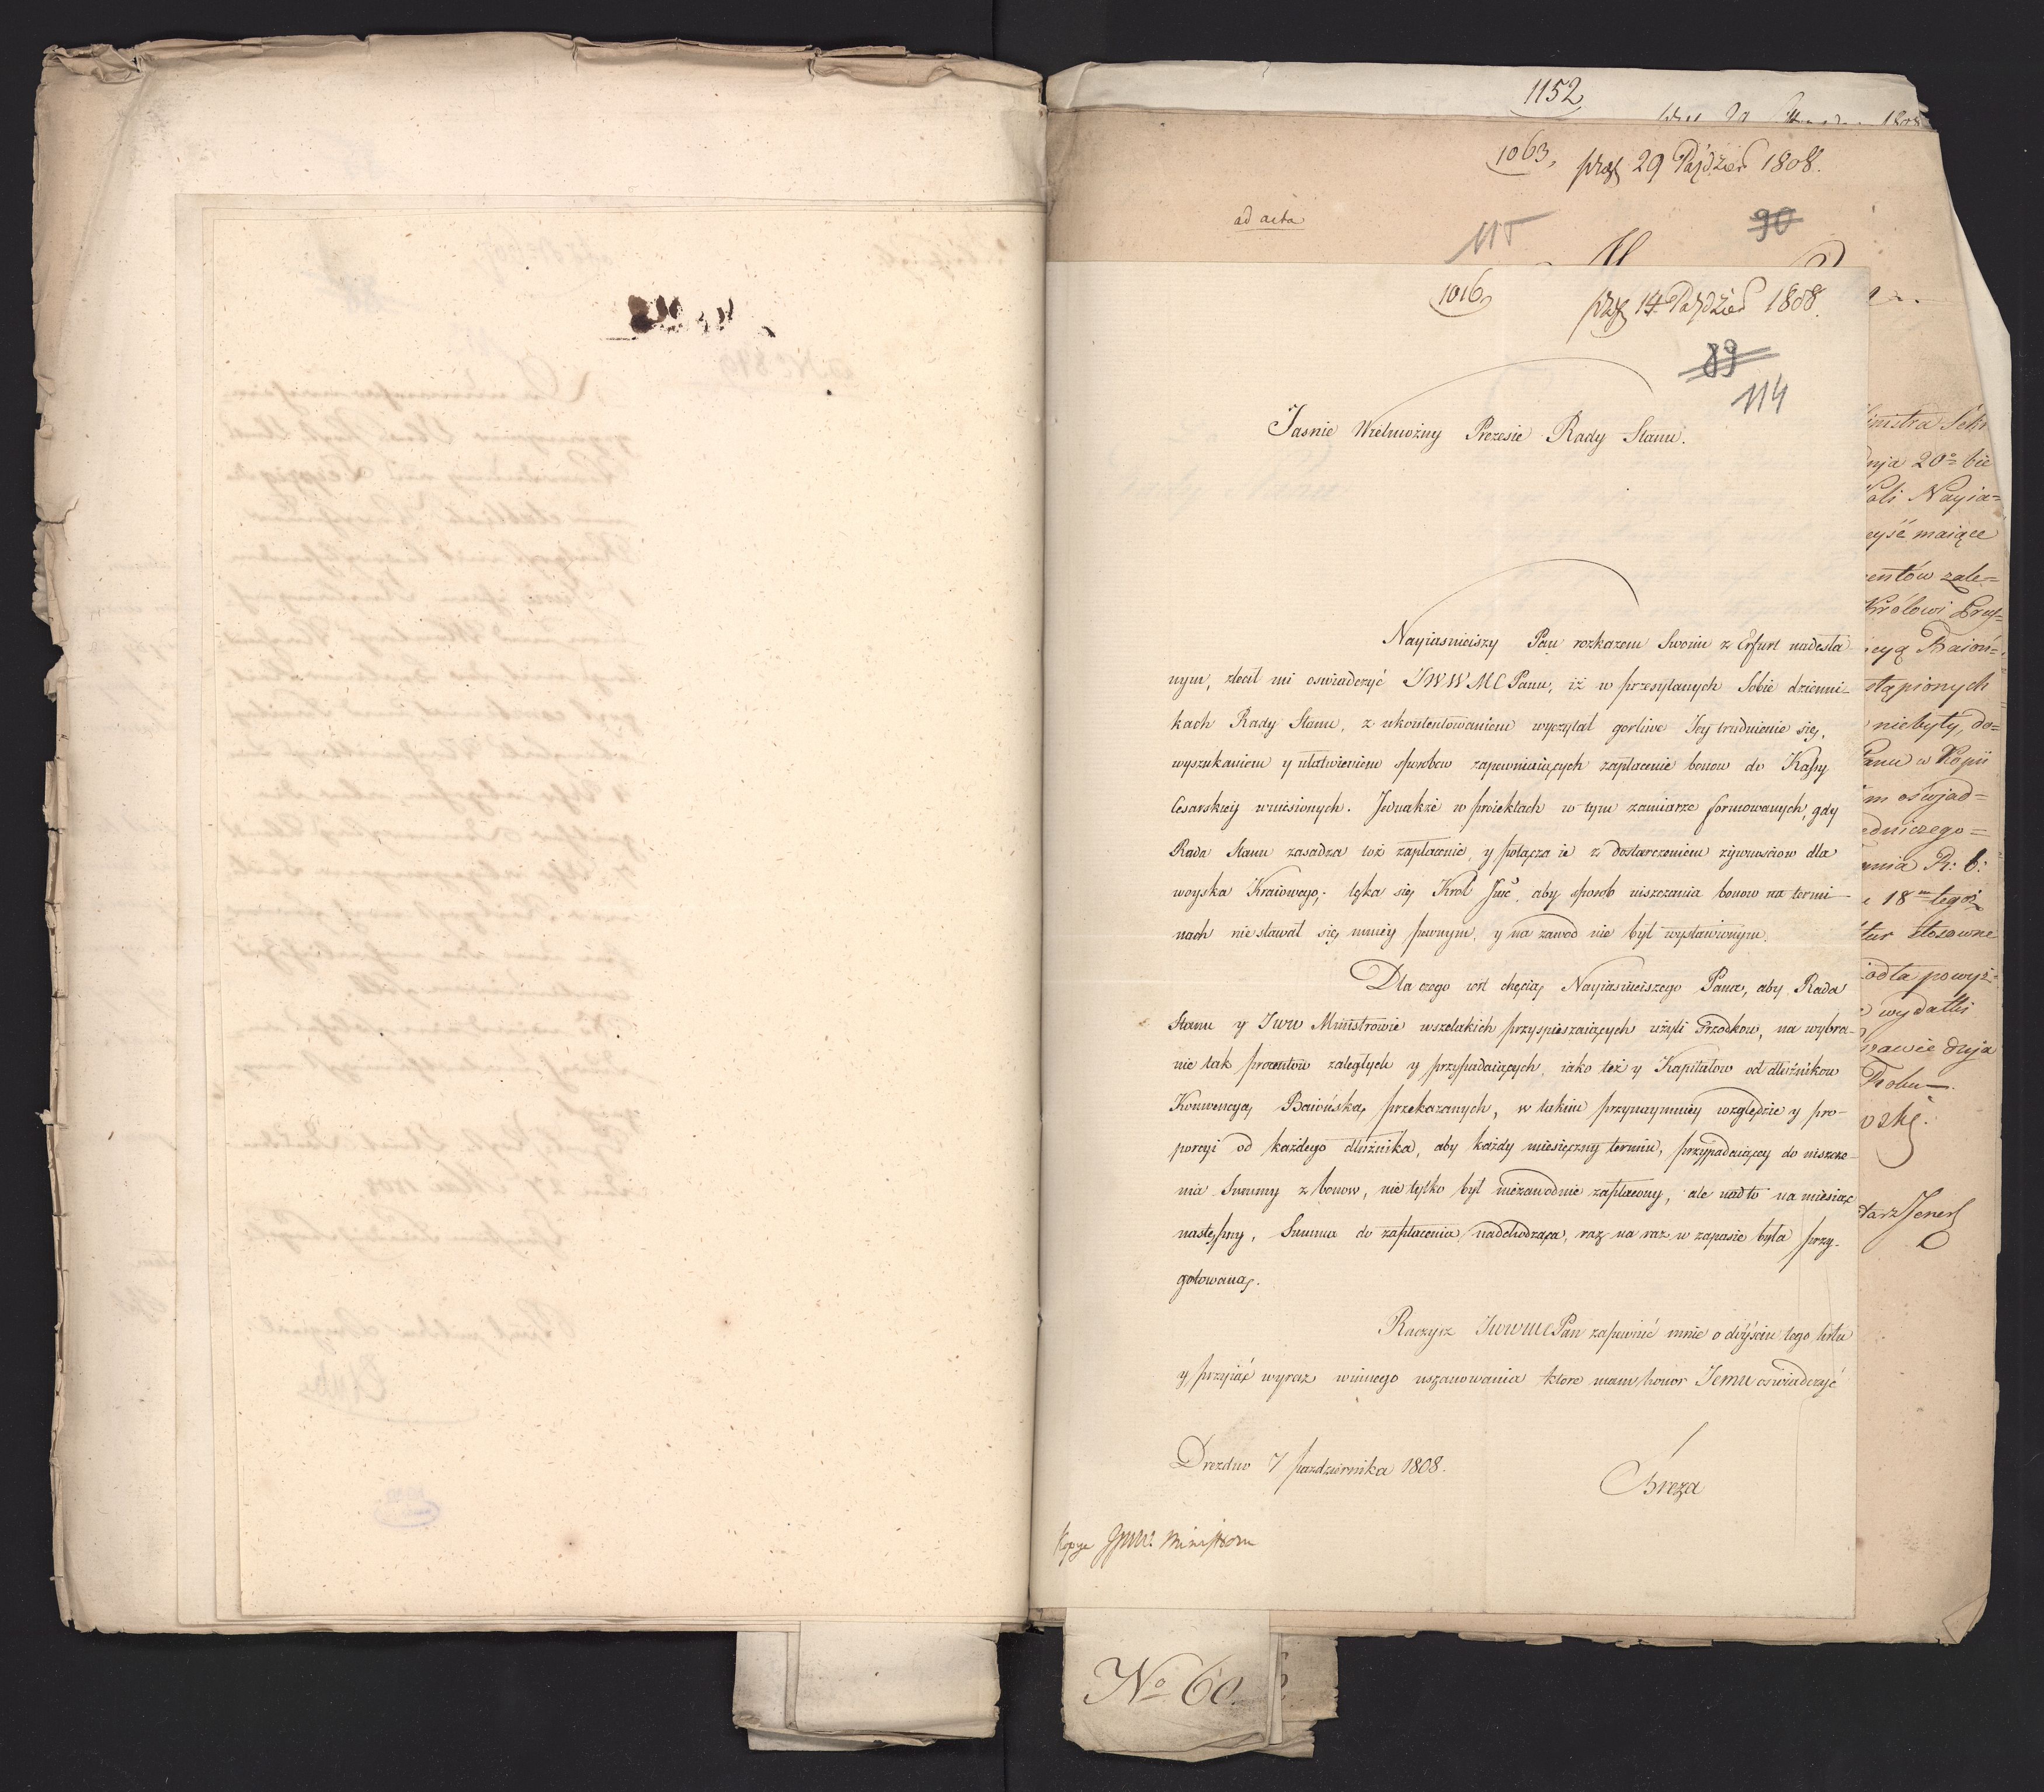 1152
1808
1063,
29 Paździer 1808.
ad acta
115
90
1016,
14 Paździer 1808.
89
114
Jasnie Wielmożny Prezesie Rady Stanu.
Nayiasnieiszy Pan rozkazem Swoim z Erfurt nadesła
nym, zlecił mi oswiadczyć JWWMC Panu, iż w przesyłanych Sobie dzienni-
kach Rady Stanu, z ukontentowaniem wyczytał gorliwe Jey trudnienie się,
wyszukaniem y ułatwieniem sposobow zapewniaiących zapłacenie bonow do Kassy
Cesarskiey wniesionych. Jednakże w proiektach w tym zamiarze formowanych, gdy
Rada Stanu zasadza toż zapłacenie, y połącza ie z dostarczeniem żywnosciow dla
woyska Kraiowego; lęka się Krol Jmć, aby sposob uiszczania bonow na termi-
nach nie stawał się mniey pewnym, y na zawod nie był wystawionym.
Dla czego iest chęcią Nayiasnieiszego Pana, aby Rada
Stanu y JWW Ministrowie wszelakich przyspieszaiących użyli srzodkow, na wybra-
nie tak procentow zaległych y przypadaiących, iako też y Kapitałow od dłużnikow
Konwencyą Baiońską przekazanych, w takim przynaymniey względzie y pro-
porcyi od każdego dłużnika, aby każdy miesięczny termin, przypadaiący do uiszcze-
nia Summy z bonow, nie tylko był niezawodnie zapłacony, ale nadto na miesiąc
następny, Summa do zapłacenia nadchodząca, raz na raz w zapasie była przy-
gotowaną.
Raczysz JWWMC Pan zapewnić mnie o doyściu tego listu
y przyiąć wyraz winnego uszanowania które mam honor Jemu oswiadczyć
Drezdno 7 pazdziernika 1808.
Breza
Kopye Ministrom
No 60.
ministra Sekr
dnja 20o bie
Nayia=
maiące
entów zale=
Królowi Prus=
cyą Baioń=
stąpionych
niebyły, do=
Panu w Kopii
m oświad=
edniczego=
nia R: b:
18m tegoż
stosowne
odła powyż=
wydatki
awie dnja
Roku—.